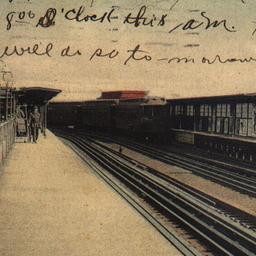 8⁰⁰ O'Clock this a.m.
will do so to-morrow